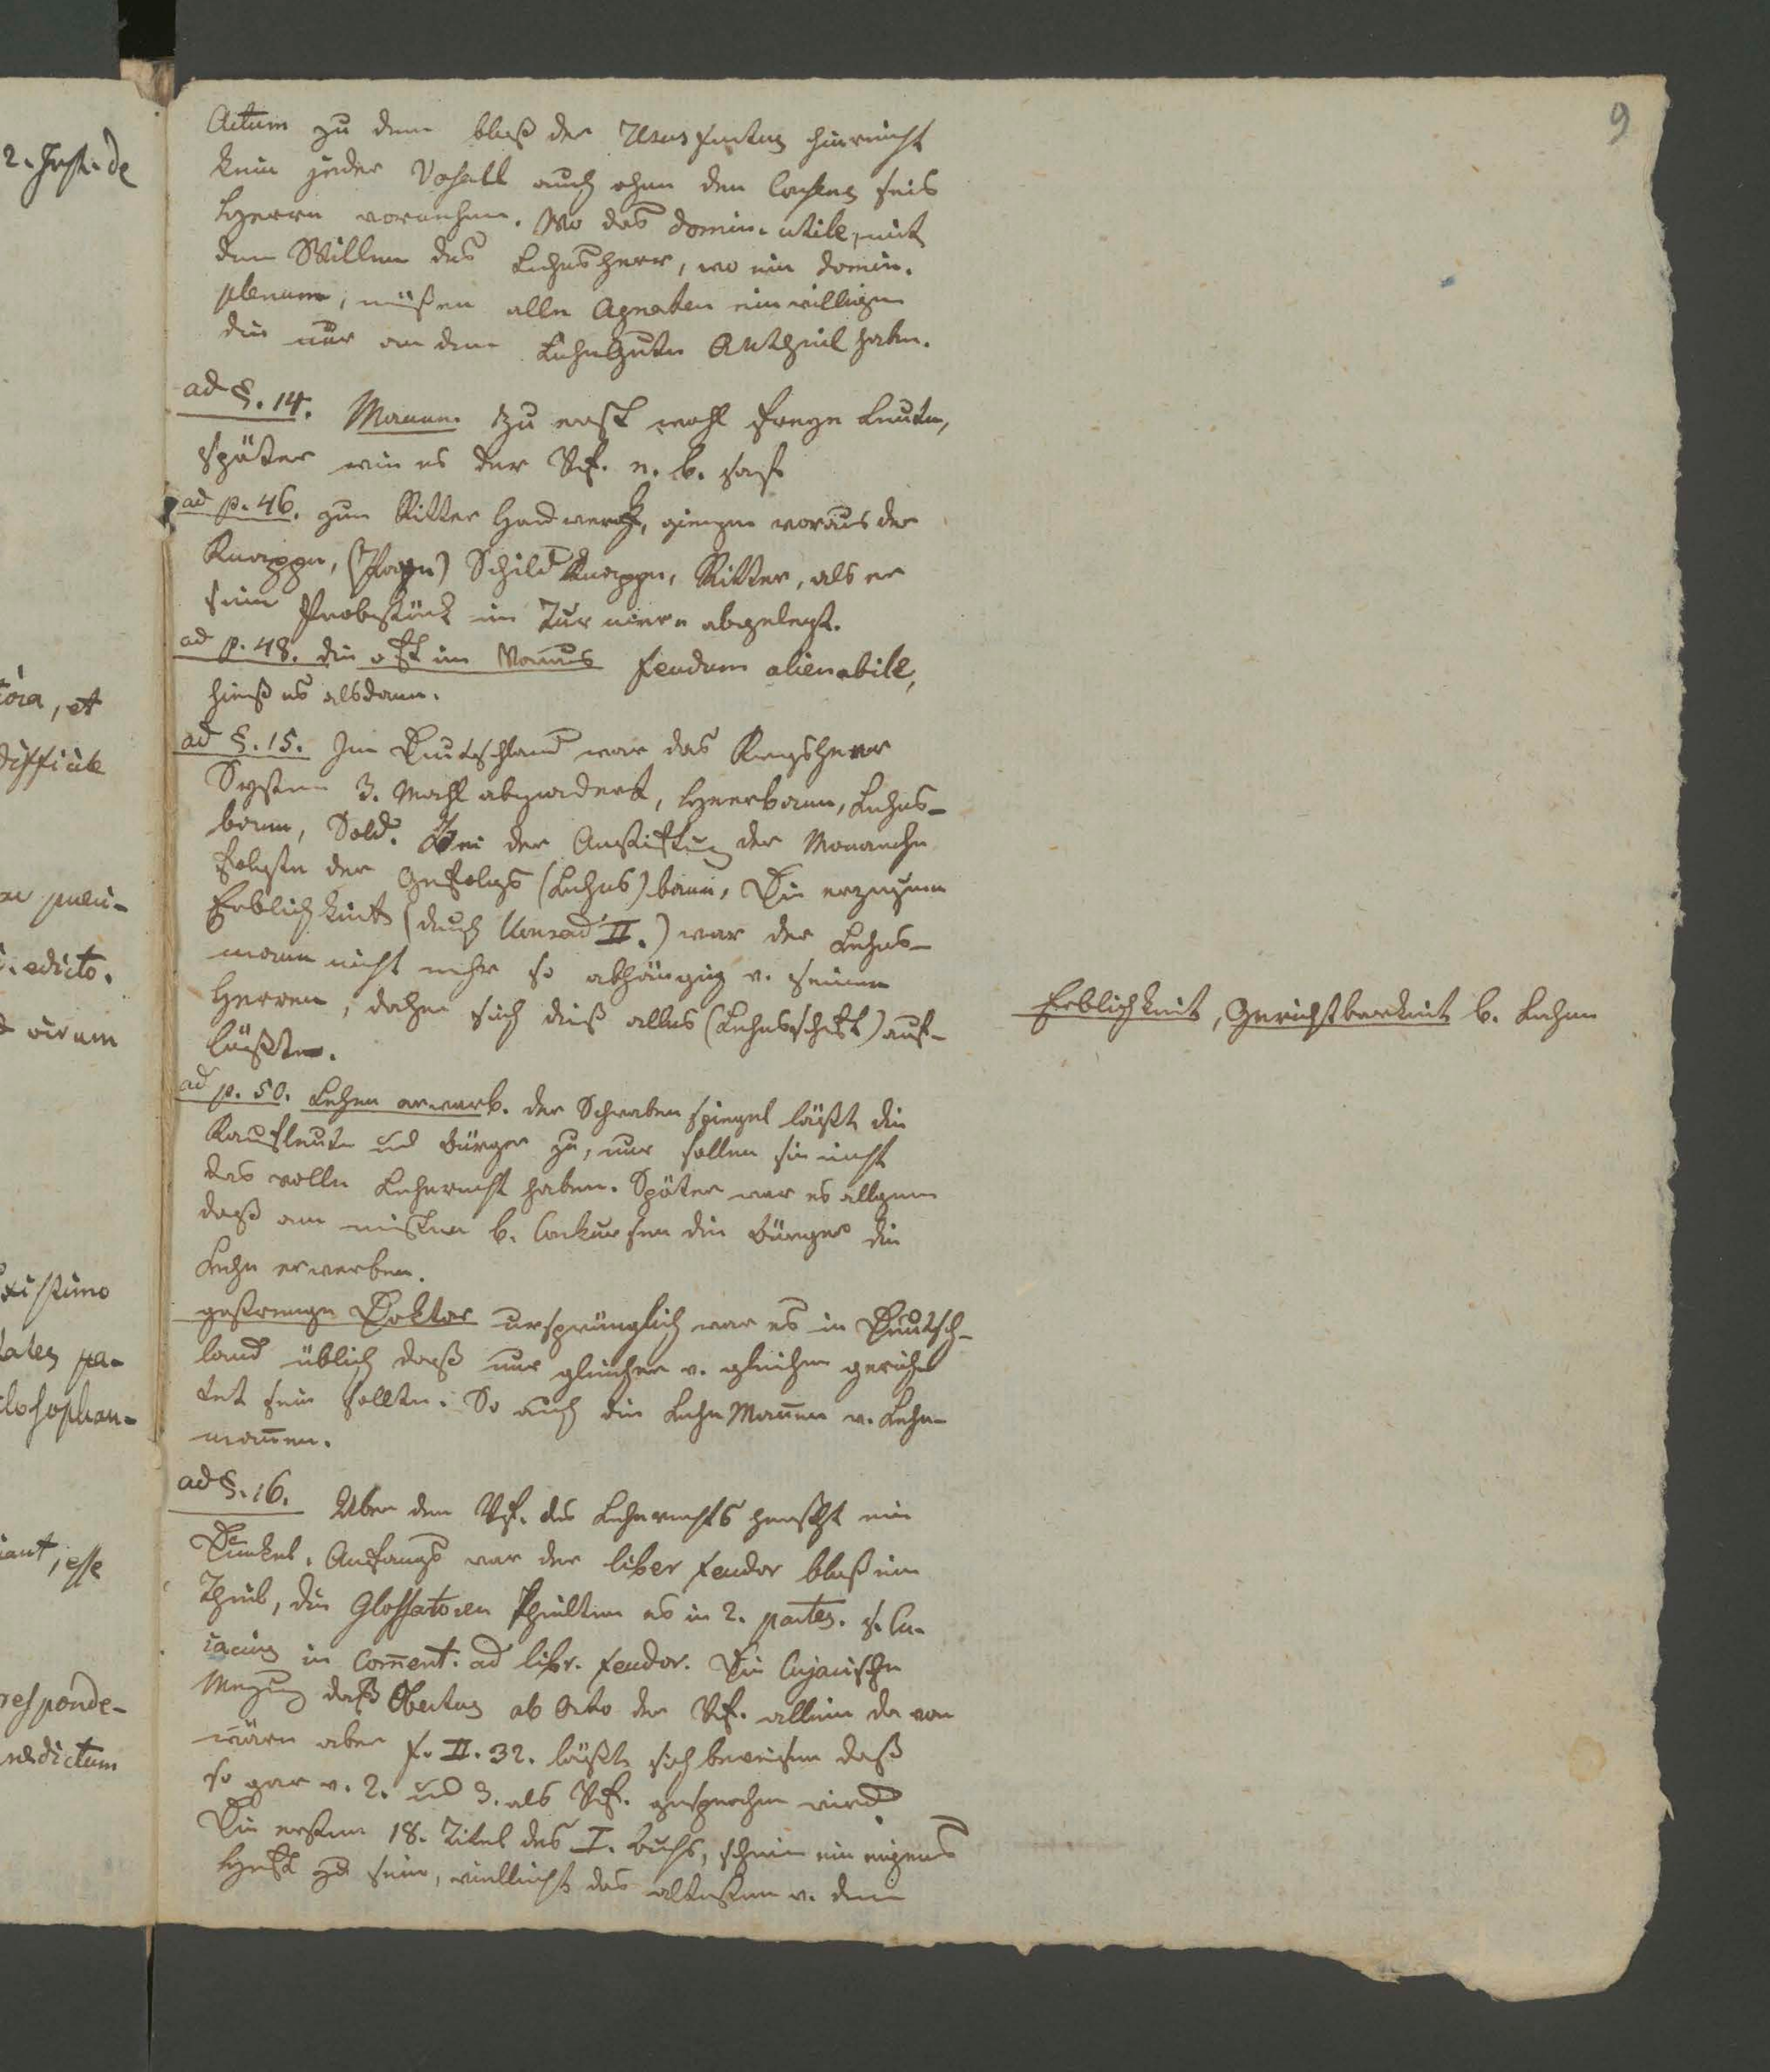 9
Actum zu dem bloß der Ususfructus hinreicht
kein jeder Vasall auch ohne den Consens seis
Herrn vornehmen. Wo das domin. utile, mit
dem Willen des Lehnsherr, wo ein domin.
plenum, müßen alle Agnaten einwilligen
die nur an dem Lehnguter Antheil haben.
ad §. 14. Manne. Zu erst wohl freye Leute,
später wie es der Vf. n. b. sagt
ad p. 46. zum Ritter Handwerk, giengen voraus der
Knappe, (Page) Schild Knappe, Ritter, als er
sein Probstück im Turniere abgelegt.
ad p. 48. die oft im feudum alienabile,
hieß es alsdann.
ad §. 15. In Deutschland war das Kriegsheer
System 3. Mahl abgeändert, Heerbann, Lehns-
bann, Sold. Bei der Anstiftung der Monarchie
folgte der Gefolgs (Lehns) bann, Die
Erblichkeit (durch Konrad II.) war der Lehns-
mann nicht mehr so abhängig v. seinem
Herren, daher sich dieß alles (Lehnsschaft) auf-
lößte.
Erblichkeit, Gerichtbarkeit b. Lehen
ad p. 50. Lehen erwarb. der Schwabenspiegel läßt die
Kaufleute und Bürger zu, nur sollen sie nicht
das volle Lehnrecht haben. Später war es allgem
daß am meisten b. Conkursen die Bürger die
Lehn erwerben.
gestrenge Doktor ursprünglich war es in Deutsch-
land üblich daß nur gleicher v. gleichen gerich
tet sein sollte. So auch die Lehn Mannen v. Lehn-
mannen.
ad §. 16. Über dem Vf. des Lehnrechts herscht ein
Dunkel. Anfangs war der liber feudor bloß ein
Theil, die Glossatoren theilten es in 2. partes. s. Cu-
iacius in Comment. ad libr. feudor. Die Cujacische
Meinung daß Obertus ab Orto der Vf. allein davon
wäre aber f. II. 32. läßt sich beweisen daß
so gar v. 2. und 3. als Vf. gesprochen wird.
Die ersten 18. Titel des I. Buchs, schein ein eigens
Heft zu sein, vielleicht das altesten v. dem
2. Inst. de
difficile
edicto.
virum
existimo
responde-